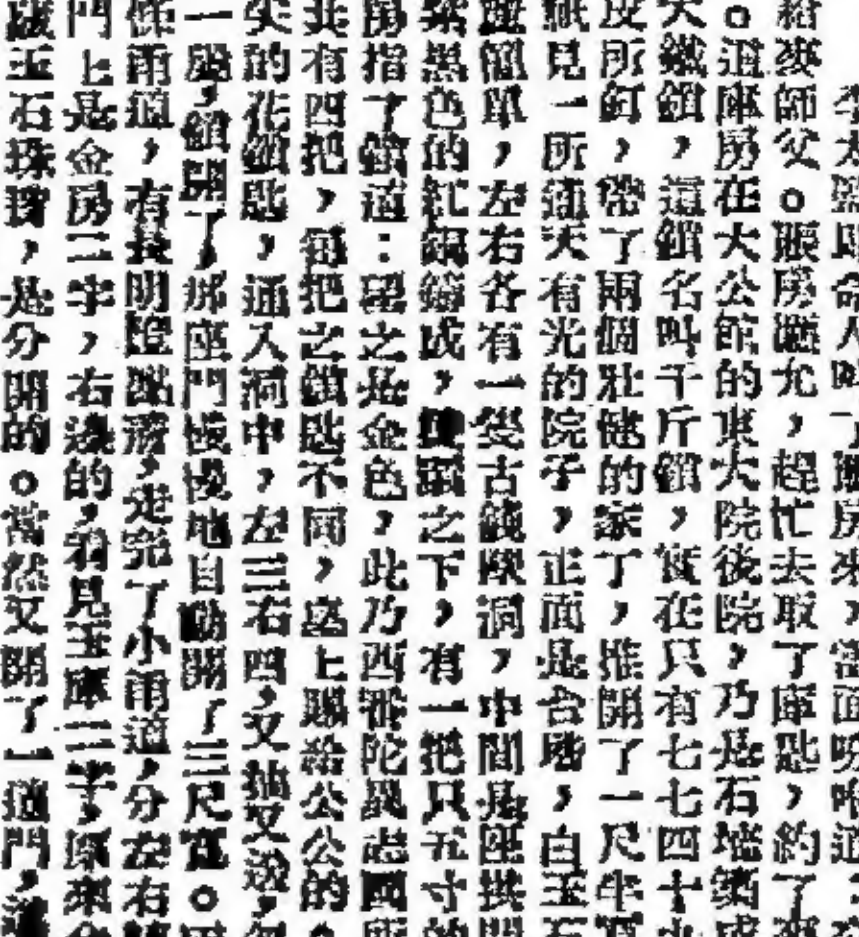 李太監即命人叫了賬房來，當面吩咐道：
給麥師父。賬房應允，趕忙去取了庫匙，約了
。這庫房在大公館的東大院後院，乃是石墻築成
大鐵鎖，這鎖名叫千斤鎖，實在只有七七四十九
皮所釘，帶了兩個壯健的家丁，推開了一尺半寬
祇見一所通天有光的院子，正面是台階，白玉石
簡單，左右各有一隻古錢獸洞，中間是座拱門
紫黑色的紅銅鑄成，獸頭之下，有一把只五寸的
房指了鎖道：望之是金色，此乃西番陀異志國
共有四把，每把之鎖匙不同，皇上賜給公公的
尖的花鎖匙，通入洞中，左三右四，又抽又放，每
一聲，鎖開了，那座門慢慢地自動開了三尺寬。
條甬道，有長明燈點著，走完了小甬道，分左右
門上是金房二字，右邊的，看見玉庫二字，原來金
玉石珠寶，是分開的。當然又開了一道門，